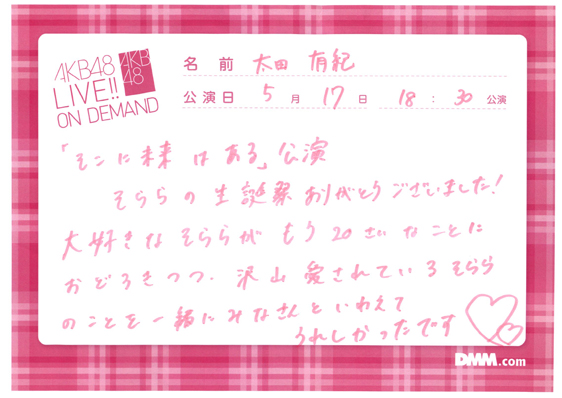 AKB48
LIVE!!
ON DEMAND
AKB
48
名 前 太田 有紀
公演日 5 月 17 日 18 : 30 公演
「そこに未来はある」公演
そららの生誕祭ありがとうございました!
大好きなそららがもう20さいなことに
おどろきつつ、沢山愛されているそらら
のことを一緒にみなさんといわえて
うれしかったです
DMM.com